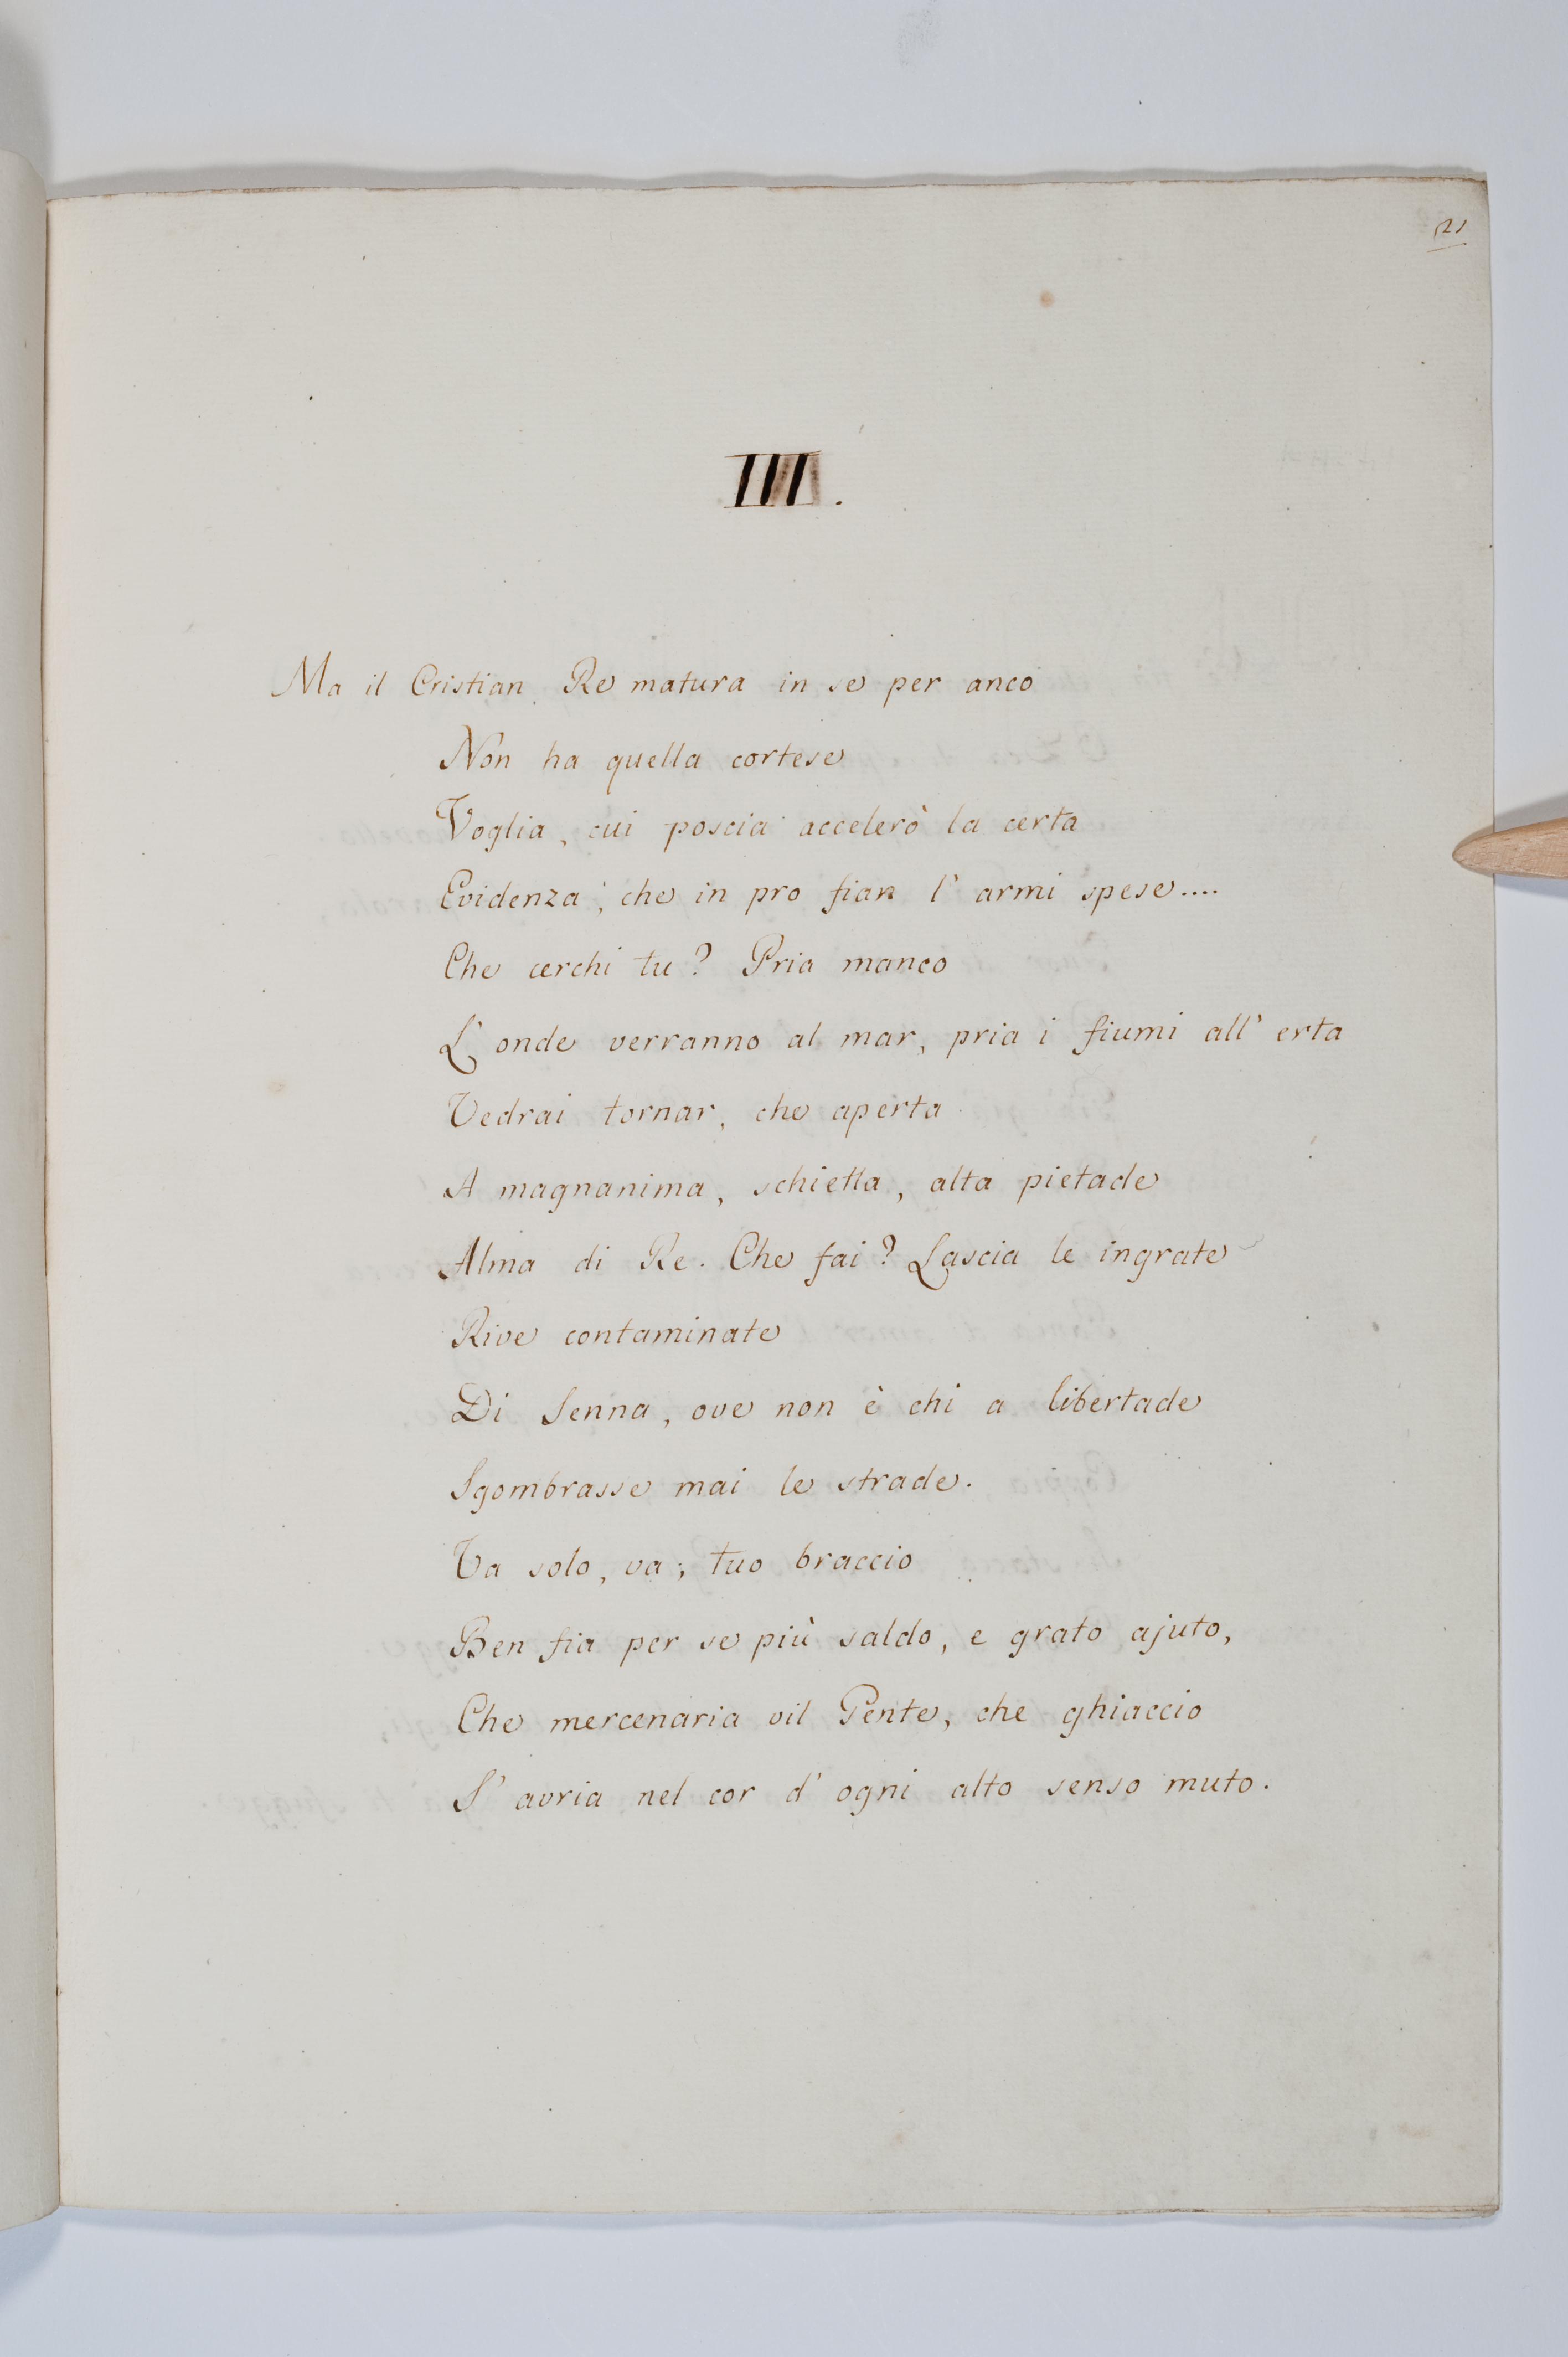 21
III.
Ma il Cristian Re matura in se per anco
Non ha quella cortese
Voglia, cui poscia accelerò la certa
Evidenza, che in pro fian l' armi spese....
Che cerchi tu? Pria manco
L' onde verranno al mar, pria i fiumi all' erta
Vedrai tornar, che aperta
A magnanima, schietta, alta pietade
Alma di Re. Che fai? Lascia le ingrate
Rive contaminate
Di Senna, ove non è chi a libertade
Sgombrasse mai le strade.
Va solo, va; tuo braccio
Ben fia per se più saldo, e grato ajuto,
Che mercenaria vil Gente, che ghiaccio
S' avria nel cor d' ogni alto senso muto.